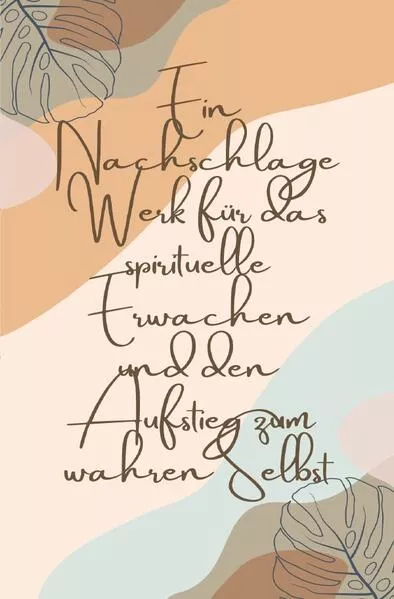 Ein
Nachschlage
Werk für das
spirituelle
Erwachen
und den
Aufstieg zum
wahren Selbst